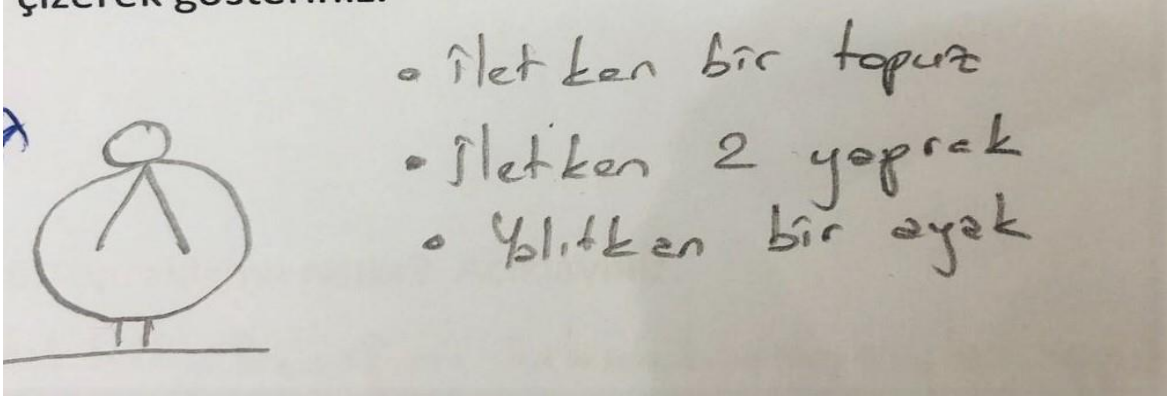 çizerek gösteriniz.
• iletken bir topuz
• İletken 2 yaprak
• Yalıtken bir ayak